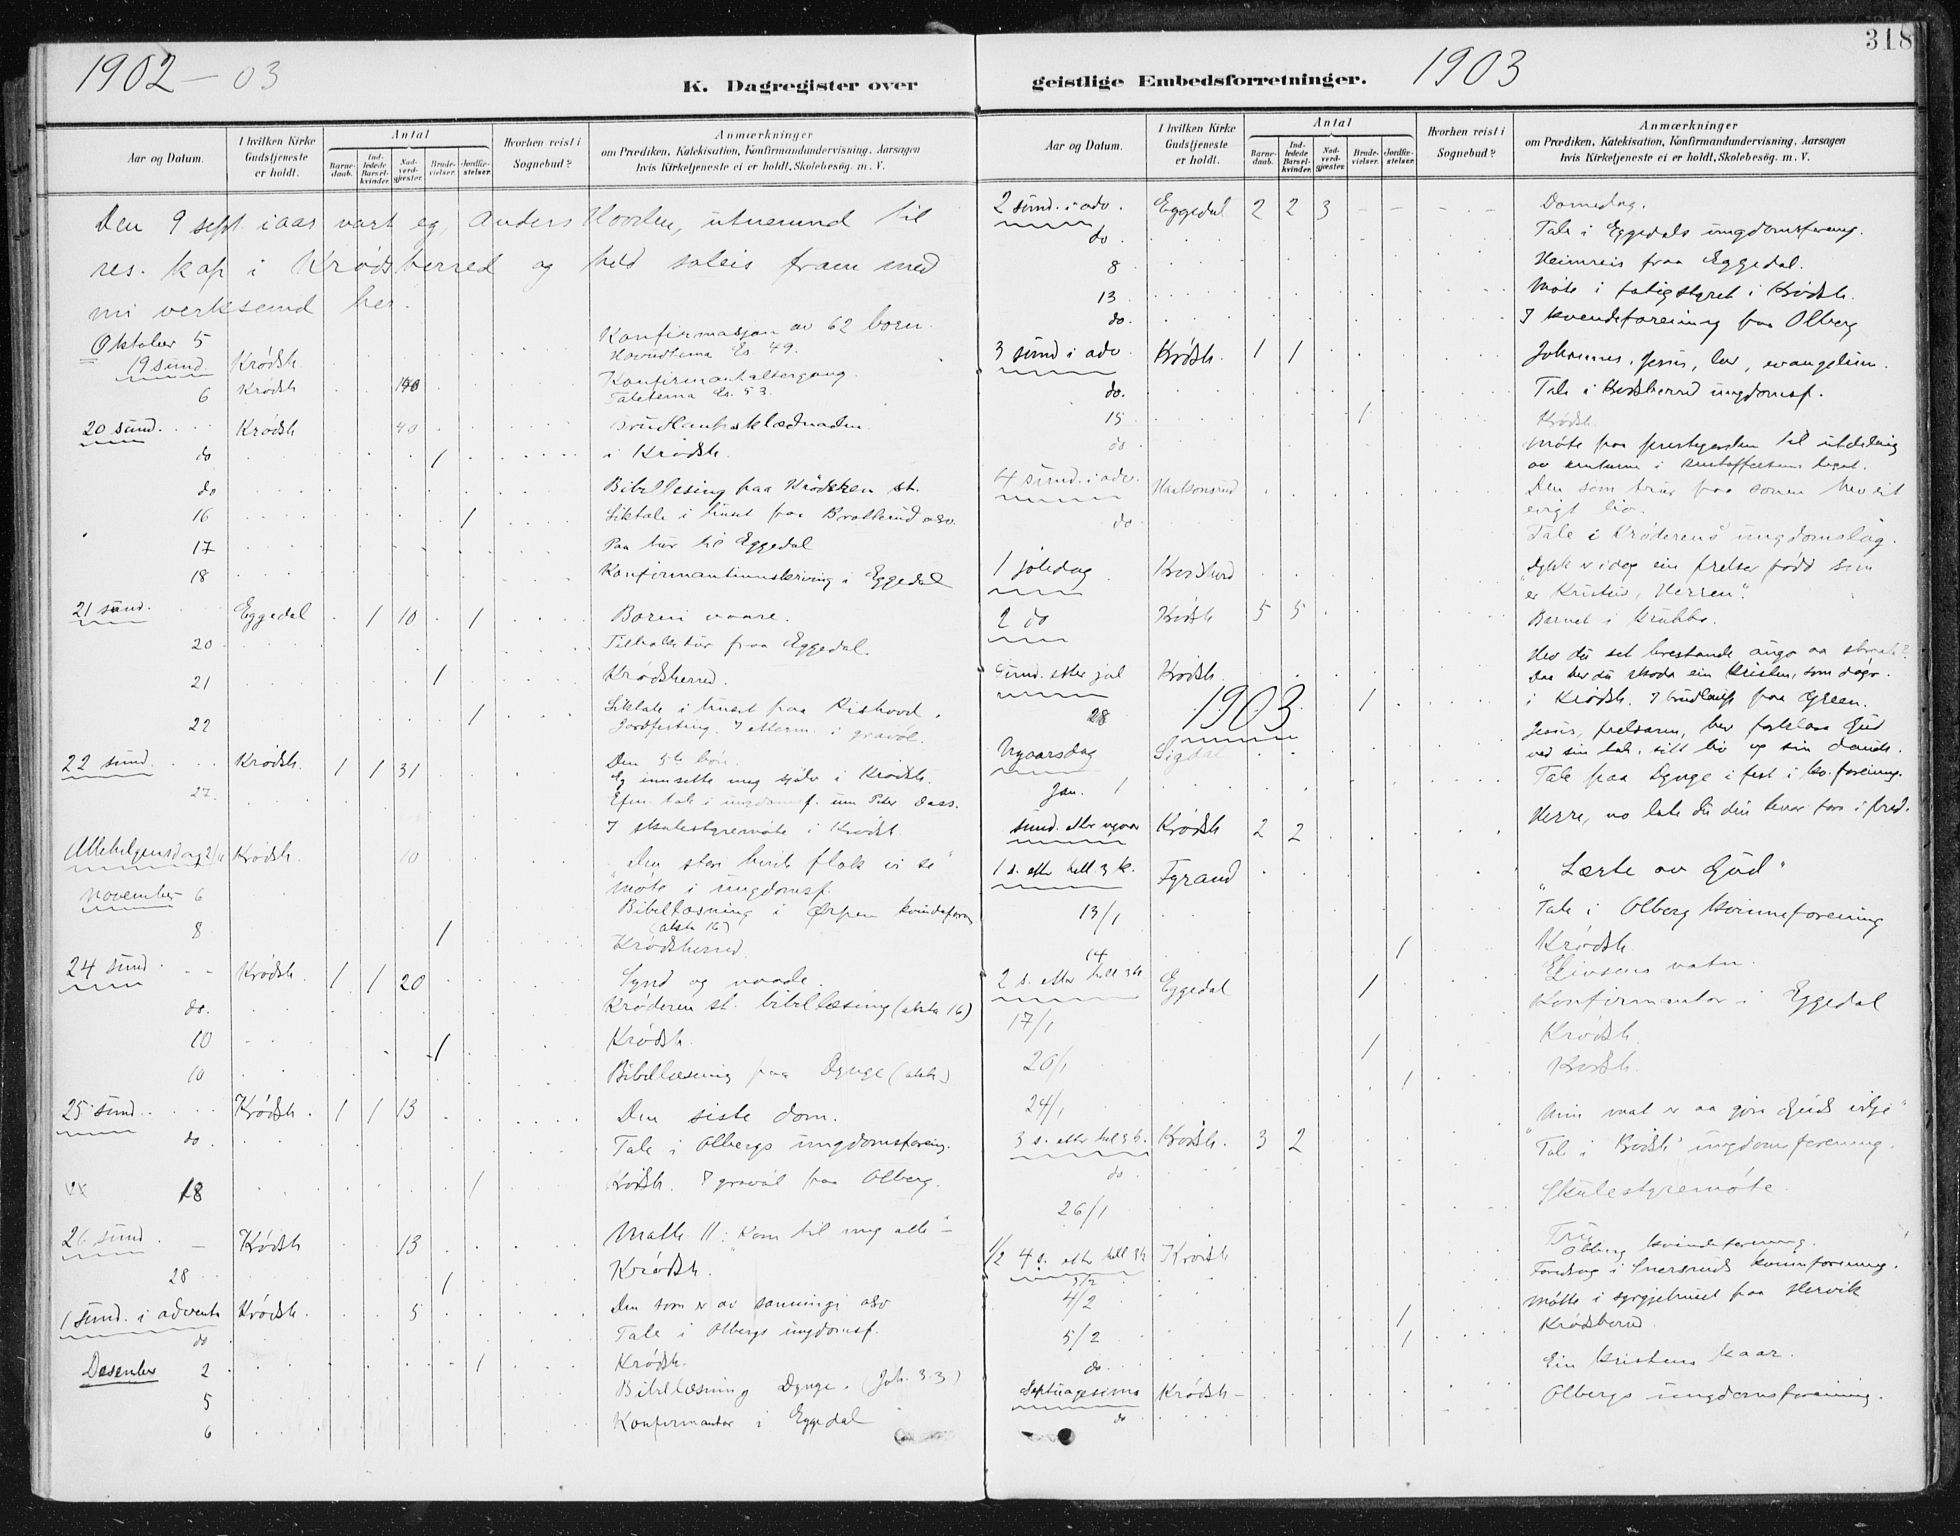 1902 - 03
K. Dagregister over
Aar og Datum.
I hvilken Kirke Gudstjeneste er holdt.
Antal
Barnedaab.
Indledede Barselkvinder.
Nadverdgjæster.
Brudevielser.
Jordfæstelser.
Hvorhen reist i Sognebud?
Anmærkninger
om Prædiken, Katekisation, Konfirmandundervisning, Aarsagen
hvis Kirketjeneste ei er holdt, Skolebesøg. m. V.
Den 9 sept. iaar vart eg, Anders Hovden, utnemnd til
res. kap i Krødsherred og held soleis fram med
mi verksemd her.
Oktober 5 Konfirmasjon av 62 born.
19 sund. Krødsh Hovudtema Es. 49.
6 Krødsh Konfirmantaltergang.
Taletema Es. 53.
20 sund. Krødsh 40
do 1 i Krødsh.
do Bibellesing paa Krøderen st.
16 1 Liktale i huset paa
17 Paa tur til Eggedal
18 i Eggedal
21 sund. Eggedal 1 10 1 Borni vaare.
20 fraa Eggedal.
21 1 Krødsherred.
22 1 Liktale i huset paa
Jordfesting. i gravøl.
22 sund. Krødsh. 1 1 31 Den 5te bøn.
Eg innsette meg sjølv i Krødsh.
27. tale i ungdomsf. um Peter Dass.
I skulestyremøte i Krødsh.
Allehelgensdag 2/11 Krødsh. 10 "Den store hvite flok vi se"
November 6 Møte i ungdomsf.
Bibellæsning i Ørpen kvindeforen
8 1 (akta 16)
Krødsherred
24 sund. Krødsh 1 1 20 Synd og naade.
do. Krøderen st. bibellæsing (akta 16)
10 1 Krødsh.
10 Bibellæsning paa Dynge (akta)
25 sund. Krødsh. 1 1 13 Den siste dom.
do Tale i Olbergs ungdomsforening.
18 1 Krødsh. I gravøl paa Olberg.
26 sund. Krødsh 13 Matth 11: "Kom til meg alle"
28 1 Krødsh.
1 sund. i advent Krødsh. 5 Den som er av sanningi
do Tale i Olbergs ungdomsf.
Desember 2 1 Krødsh.
5 Bibellæsning Dynge. (Joh. 3.3)
6 Konfirmantar i Eggedal
318
geistlige Embedsforretninger. 1903
Aar og Datum.
I hvilken Kirke Gudstjeneste er holdt.
Antal
Barnedaab.
Indledede Barselkvinder.
Nadverdgjæster.
Brudevielser.
Jordfæstelser.
Hvorhen reist i Sognebud?
Anmærkninger
om Prædiken, Katekisation, Konfirmandundervisning, Aarsagen
hvis Kirketjeneste ei er holdt, Skolebesøg. m. V.
2 sund. i adv. Eggedal 2 2 3 Domedag.
do Tale i Eggedals ungdomsforening.
8 Heimreis fraa Eggedal.
13 Møte i fatigstyret i Krødsh.
do. I kvendeforening paa Olberg
3 sund i adv. Krødsh. 1 1 Johannes, Jesus, lov, evangelium.
do. Tale i Krødsherred ungdomsf.
15 1 Krødsh.
do Møte paa prestegarden til utdeling
av rentune i legat.
4 sund. i adv. Den som trur paa sonen hev eit
evigt liv.
do Tale i Krøderens ungdomslag.
1 joledag Krødsherd "Dykk er idag ein frelsar fødd som
er Kristus, Herren".
2 do Krødsh 5 5 Barnet i krubba.
Hev du set
sund. etter jol Krødsh. Daa har du skoda ein kristen, som døyr.
28 1903 1 i Krødsh. I brudlaup paa Green.
Jesus, frelsaren, hev Gud
Nyaarsdag Sigdal ved sin tale, sitt liv og sin daude.
Jan. 1 Tale paa Dynge i fest i kv.forening.
sund. etter nyaar Krødsh 2 2 Herre, no late du din tenar fara i fred.
1 s. etter hell. 3 k. Fyrand "Lærte av Gud"
13/1 Tale i Olberg kvinneforening
14 1 Krødsh.
2 s. etter hell 3k Eggedal 1 Livsens vatn.
17/1 Konfirmantar i Eggedal
20/1 1 Krødsh.
24/1 1 Krødsh.
3 s. etter hel 3 k. Krødsh. 3 2 "Min mat er aa gjøra Guds vilje"
do Tale i Krødsh' ungdomsforening.
26/1 Skulestyremøte.
1/2 4 s. etter hell 3k Krødsh Tru
Olberg kvindeforening.
3/2 Foredrag i Snersruds kvinnforening.
4/2 1 Møtte i syrgjehuset paa
5/2 1 Krødsherred.
do. Ein kristens kaar.
Septuagesima Krødsh - Olbergs ungdomsforening.
do